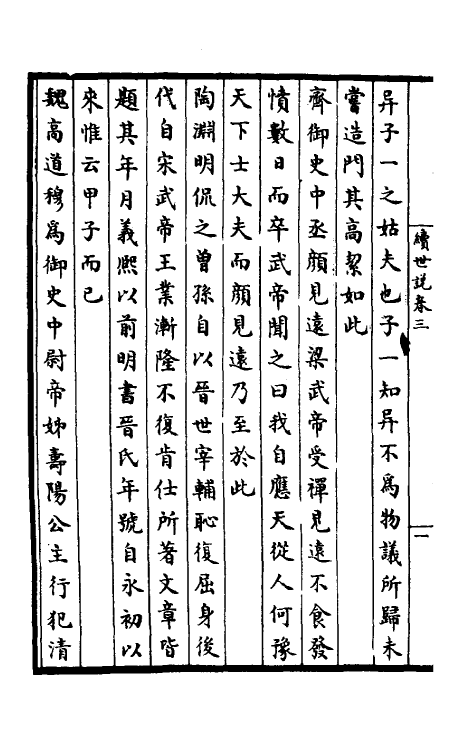 續世説卷三
一
异子一之姑夫也子一知异不為物議所歸未
嘗造門其高絜如此
齊御史中丞顔見遠梁武帝受禪見遠不食發
憤數日而卒武帝聞之曰我自應天從人何豫
天下士大夫而顔見遠乃至於此
陶淵明侃之曽孫自以晉世宰輔恥復屈身後
代自宋武帝王業漸隆不復肯仕所著文章皆
題其年月義熙以前明書晉氏年號自永初以
來惟云甲子而已
魏高道穆為御史中尉帝姊壽陽公主行犯清